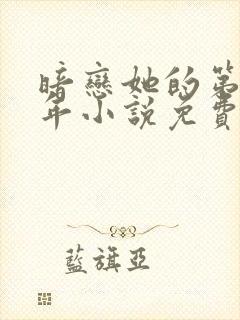 暗戀她的第
年小說免費
藍旗亞